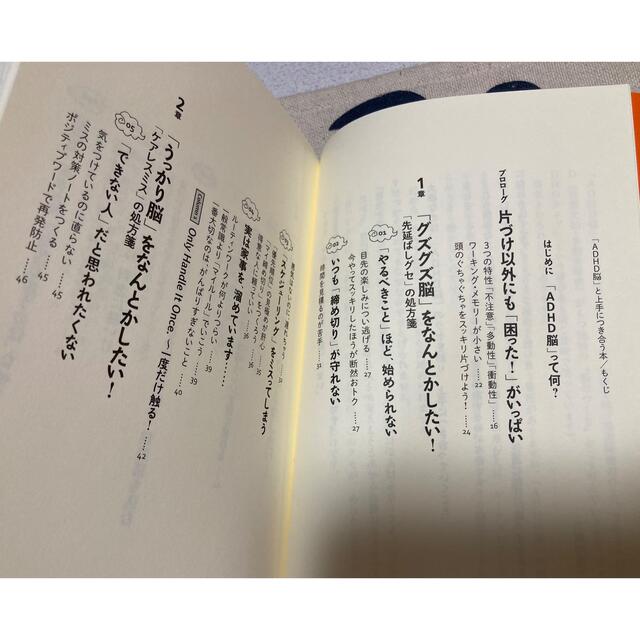 「ADHD脳」と上手につき合う本／もくじ
はじめに 「ADHD脳」って何？
プロローグ 片づけ以外にも「困った！」がいっぱい
3つの特性「不注意」「多動性」「衝動性」 ……16
ワーキング・メモリーが小さい ……22
頭のぐちゃぐちゃをスッキリ片づけよう！ ……24
1章 「グズグズ脳」をなんとかしたい！
「先延ばしグセ」の処方箋
01 「やるべきこと」ほど、始められない
目先の楽しみについ逃げる ……27
今やってスッキリしたほうが断然おトク ……27
02 いつも「締め切り」が守れない
時間を見積るのが苦手 ……31
「スケジューリング」をミスってしまう
「優先順位」の見極めが肝心 ……35
「マイ締め切り」をつくろう ……36
実は家事を、溜めています……
ルーティンワークが何よりつらい ……38
一般常識より「マイルール」でいこう ……39
一番大切なのは、がんばりすぎないこと ……40
Only Handle It Once ～一度だけ触る！ ……42
2章 「うっかり脳」をなんとかしたい！
「ケアレスミス」の処方箋
05 「できない人」だと思われたくない
気をつけているのに直らない ……45
ミスの対策ノートをつくる ……45
ポジティブワードで再発防止 ……46